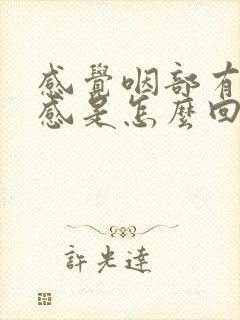 感覺咽部有
感是怎麼回
許光達